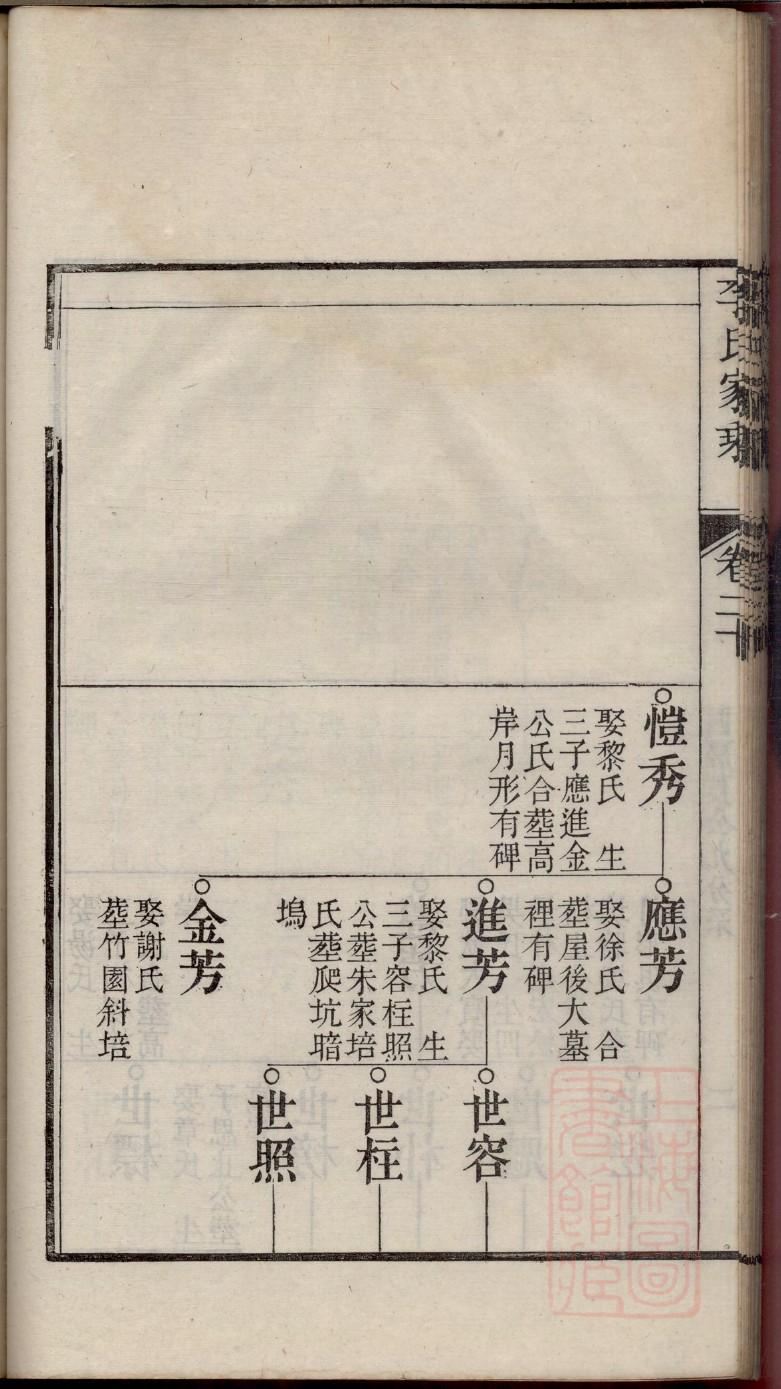 李氏家乘
卷二十
愷秀
娶黎氏　生
三子應進金
公氏合塟高
岸月形有碑
應芳
娶徐氏　合
塟屋後大墓
裡有碑
進芳
娶黎氏　生
三子容枉照
公塟朱家培
氏塟爬坑暗
塢
金芳
娶謝氏
塟竹園斜培
世容
世枉
世照
上海圖
書館藏